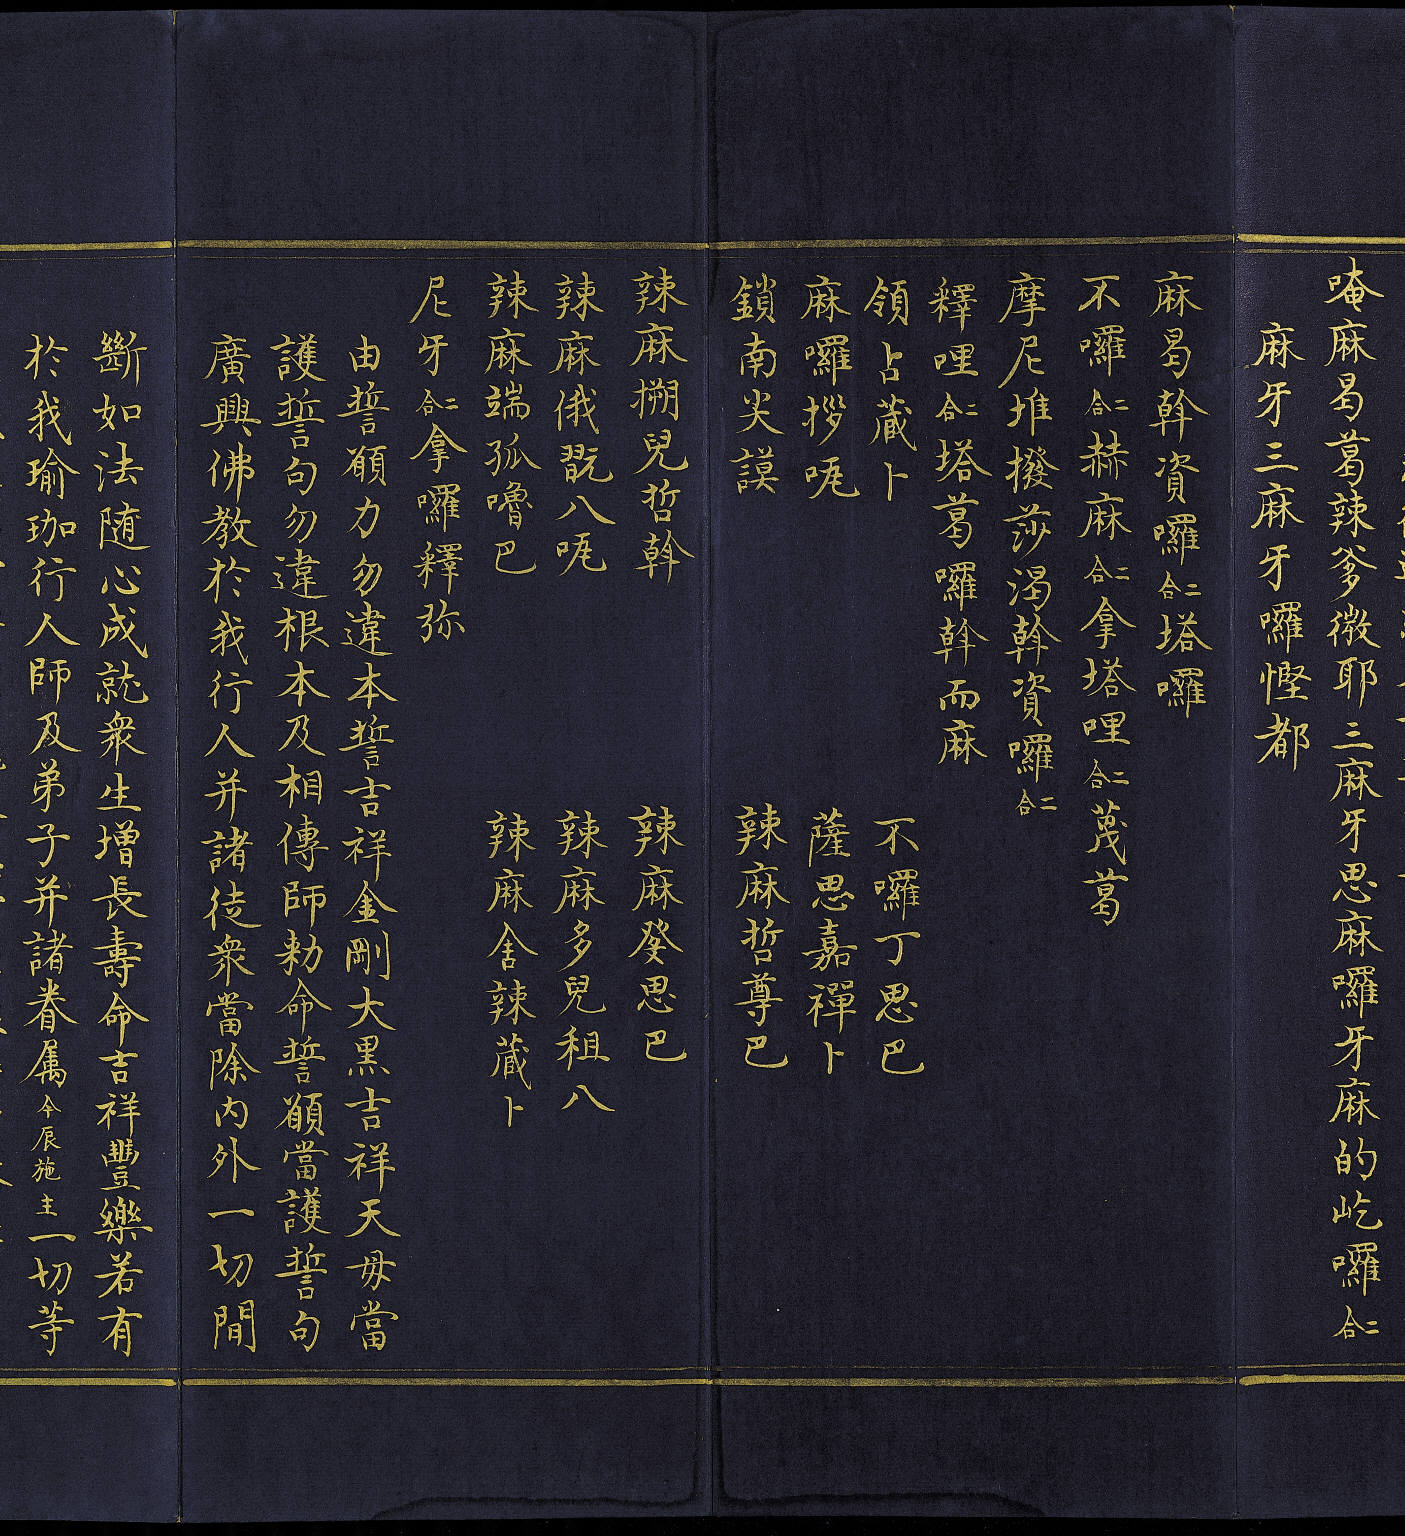 唵麻曷葛辣爹微耶三麻牙思麻囉牙麻的屹囉二合
麻牙三麻牙囉慳都
麻曷斡資囉二合塔囉
不囉二合赫麻二合拿塔哩二合蔑葛
摩尼堆撥莎渴斡資囉二合
釋哩二合塔葛囉斡而麻
領占藏卜 不囉丁思巴
麻囉拶㖂 薩思嘉禪卜
鎖南尖謨 辣麻哲尊巴
辣麻搠兒哲斡 辣麻癹思巴
辣麻俄翫八㖂 辣麻多兒租八
辣麻端孤嚕巴 辣麻舍辣藏卜
尼牙二合拿囉釋弥
由誓願力勿違本誓吉祥金剛大黑吉祥天毋當
護誓句勿違根本及相傳師勑命誓願當護誓句
廣興佛教於我行人并諸徒衆當除内外一切間
斷如法随心成就衆生增長壽命吉祥豐樂若有
於我瑜珈行人師及弟子并諸眷属今辰施主一切等